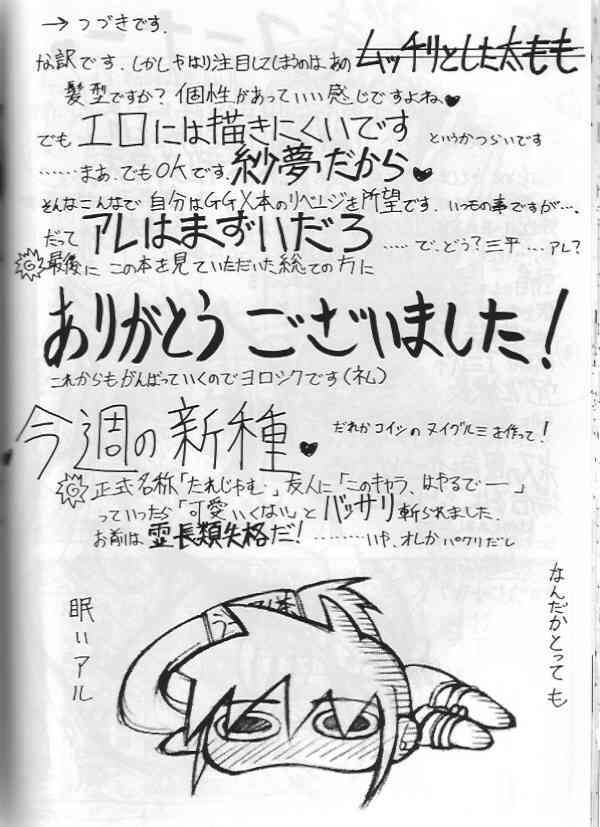 → つづきです。
な訳です。しかしやはり注目してしまうのは、あの ムッチリとした太もも
髪型ですか? 個性があっていい感じですよね♥
でも エロには描きにくいです というかつらいです
……まあ、でもOKです。紗夢だから♥
そんなこんなで 自分はGGX本のリベンジを所望です。いつもの事ですが…。
だって アレはまずいだろ ……で、どう?三平…アレ?
最後に この本を見ていただいた総ての方に
ありがとう ございました!
これからもがんばっていくのでヨロシクです(礼)
今週の新種♥ だれかコイツのヌイグルミを作って!
正式名称「たれじゃむ」友人に「このキャラ、はやるでー」
っていったら「可愛いくない」とバッサリ斬られました。
お前は霊長類失格だ!………いや、オレがパクリだし
なんだかとっても
眠いアル